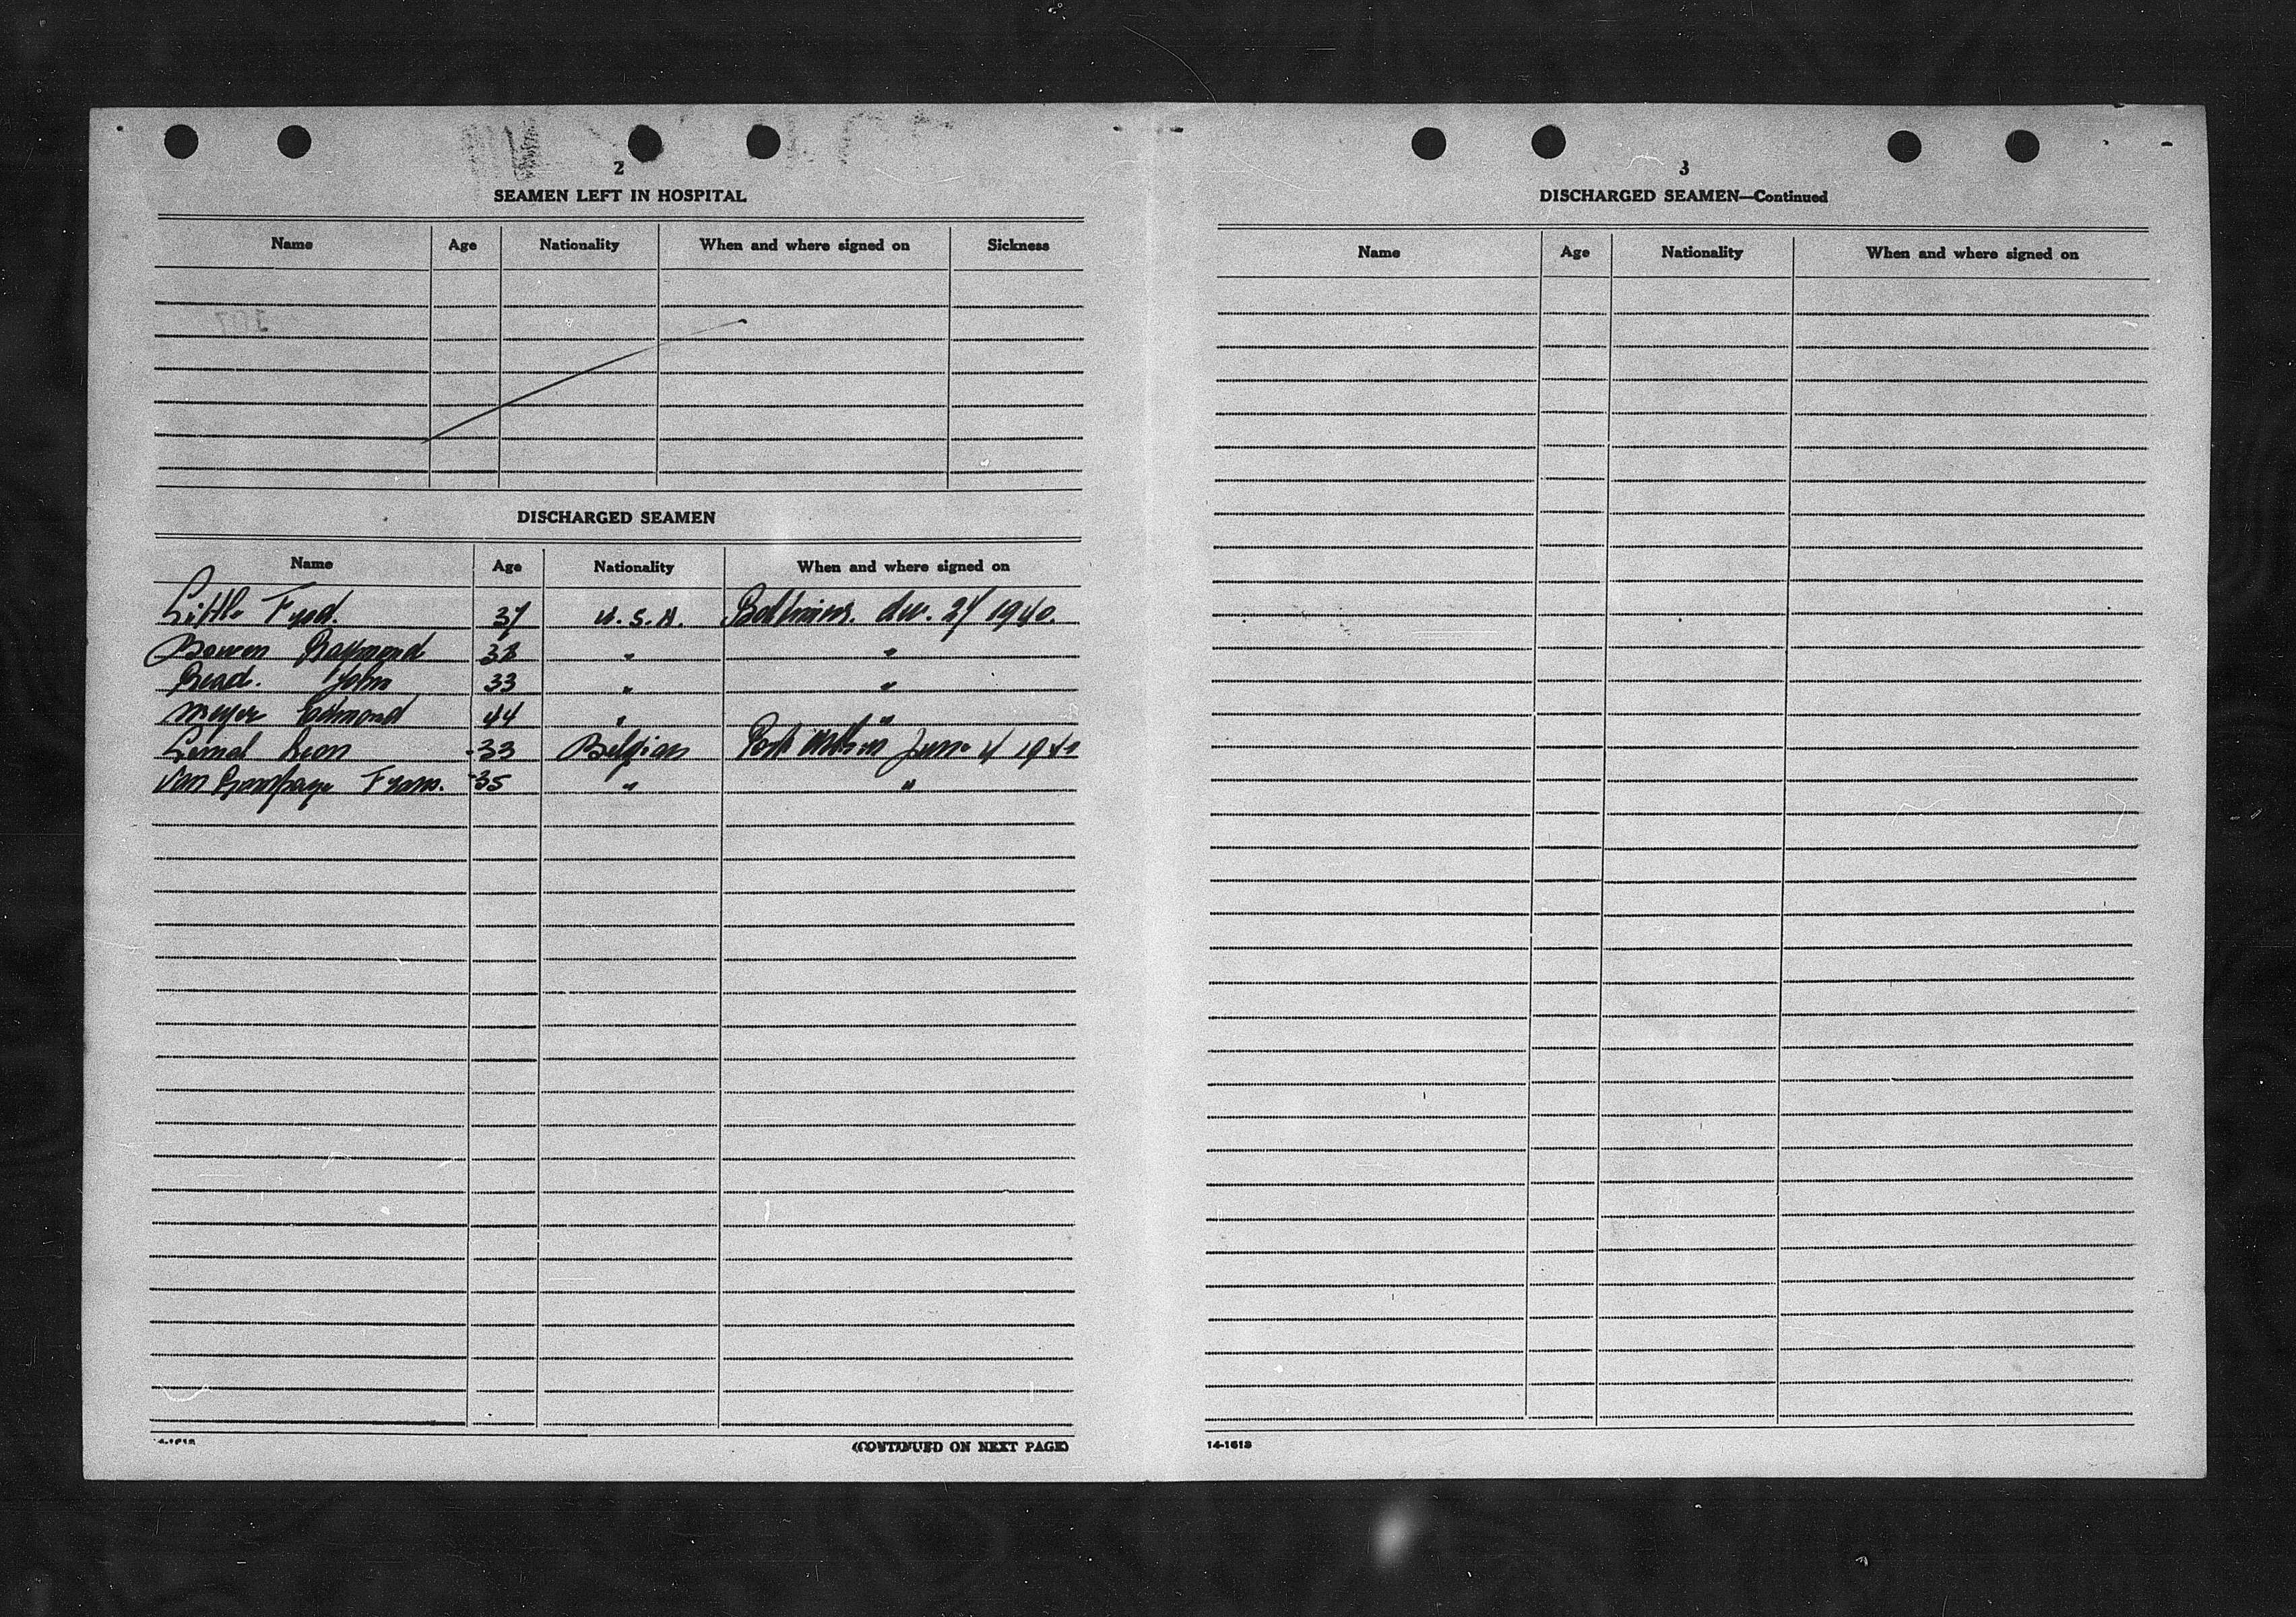 2
SEAMEN LEFT IN HOSPITAL
Name Age Nationality When and where signed on Sickness
DISCHARGED SEAMEN
Name Age Nationality When and where signed on
Little Fred. 37 U.S.A. Baltimore. dec. 27 1940.
Bowen Raymond 32 " "
Read. John 33 " "
Meyer Edmond 44 " "
Leon 33 Belgian Port June 4 1941
Van Frans. 35 " "
(CONTINUED ON NEXT PAGE)
3
DISCHARGED SEAMEN—Continued
Name Age Nationality When and where signed on
14-1613